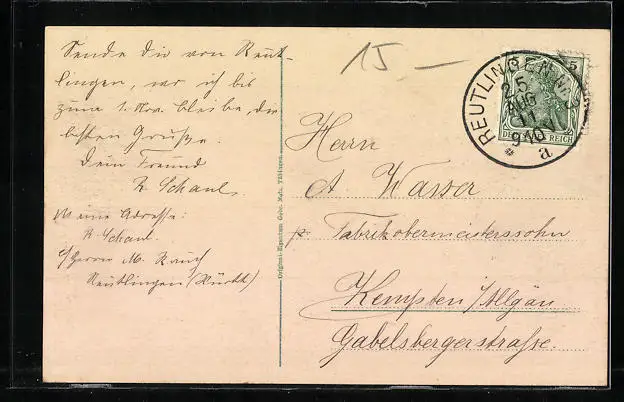 Sende dir von Reut-
lingen, wo ich bis
zum 1. Nov. bleibe, die
besten Grüsse.
Dein Freund
R. Schaul.
Meine Adresse:
R. Schaul.
c/o Herrn M. Rauch
Reutlingen (Württ)
Original-Eigentum Gebr. Metz, Tübingen.
15 –
REUTLINGEN
25
AUG
11
910
* a
5
REICH
Herrn
A. Wasser
p. Fabrikobermeisterssohn
Kempten i/Allgäu
Gabelsbergerstraße.